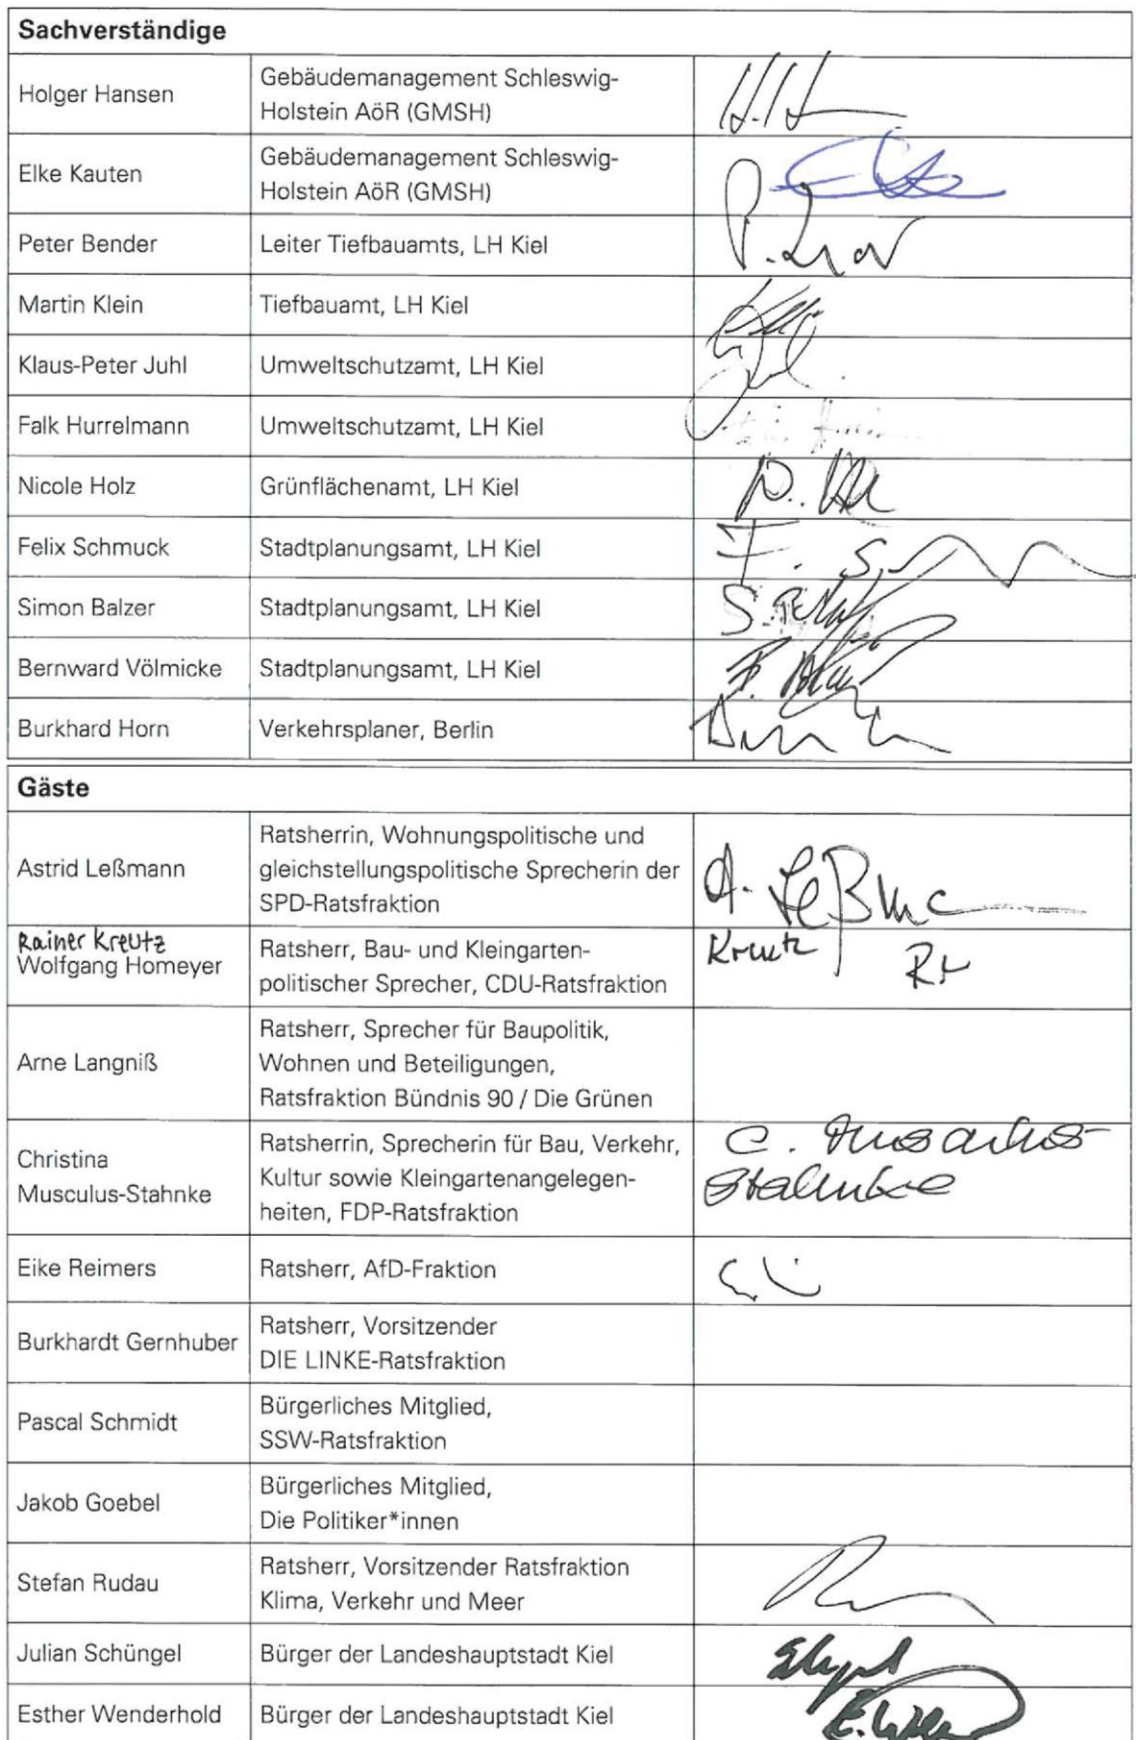 Sachverständige
Holger Hansen
Gebäudemanagement Schleswig-
Holstein AöR (GMSH)
Elke Kauten
Gebäudemanagement Schleswig-
Holstein AöR (GMSH)
Peter Bender
Leiter Tiefbauamts, LH Kiel
Martin Klein
Tiefbauamt, LH Kiel
Klaus-Peter Juhl
Umweltschutzamt, LH Kiel
Falk Hurrelmann
Umweltschutzamt, LH Kiel
Nicole Holz
Grünflächenamt, LH Kiel
Felix Schmuck
Stadtplanungsamt, LH Kiel
Simon Balzer
Stadtplanungsamt, LH Kiel
Bernward Völmicke
Stadtplanungsamt, LH Kiel
Burkhard Horn
Verkehrsplaner, Berlin
Gäste
Astrid Leßmann
Ratsherrin, Wohnungspolitische und
gleichstellungspolitische Sprecherin der
SPD-Ratsfraktion
A. Leßm
Rainer Kreutz
Wolfgang Homeyer
Ratsherr, Bau- und Kleingarten-
politischer Sprecher, CDU-Ratsfraktion
Kreutz
Arne Langniß
Ratsherr, Sprecher für Baupolitik,
Wohnen und Beteiligungen,
Ratsfraktion Bündnis 90 / Die Grünen
Christina
Musculus-Stahnke
Ratsherrin, Sprecherin für Bau, Verkehr,
Kultur sowie Kleingartenangelegen-
heiten, FDP-Ratsfraktion
C. Musculus-
Stahnke
Eike Reimers
Ratsherr, AfD-Fraktion
Burkhardt Gernhuber
Ratsherr, Vorsitzender
DIE LINKE-Ratsfraktion
Pascal Schmidt
Bürgerliches Mitglied,
SSW-Ratsfraktion
Jakob Goebel
Bürgerliches Mitglied,
Die Politiker*innen
Stefan Rudau
Ratsherr, Vorsitzender Ratsfraktion
Klima, Verkehr und Meer
Julian Schüngel
Bürger der Landeshauptstadt Kiel
Esther Wenderhold
Bürger der Landeshauptstadt Kiel